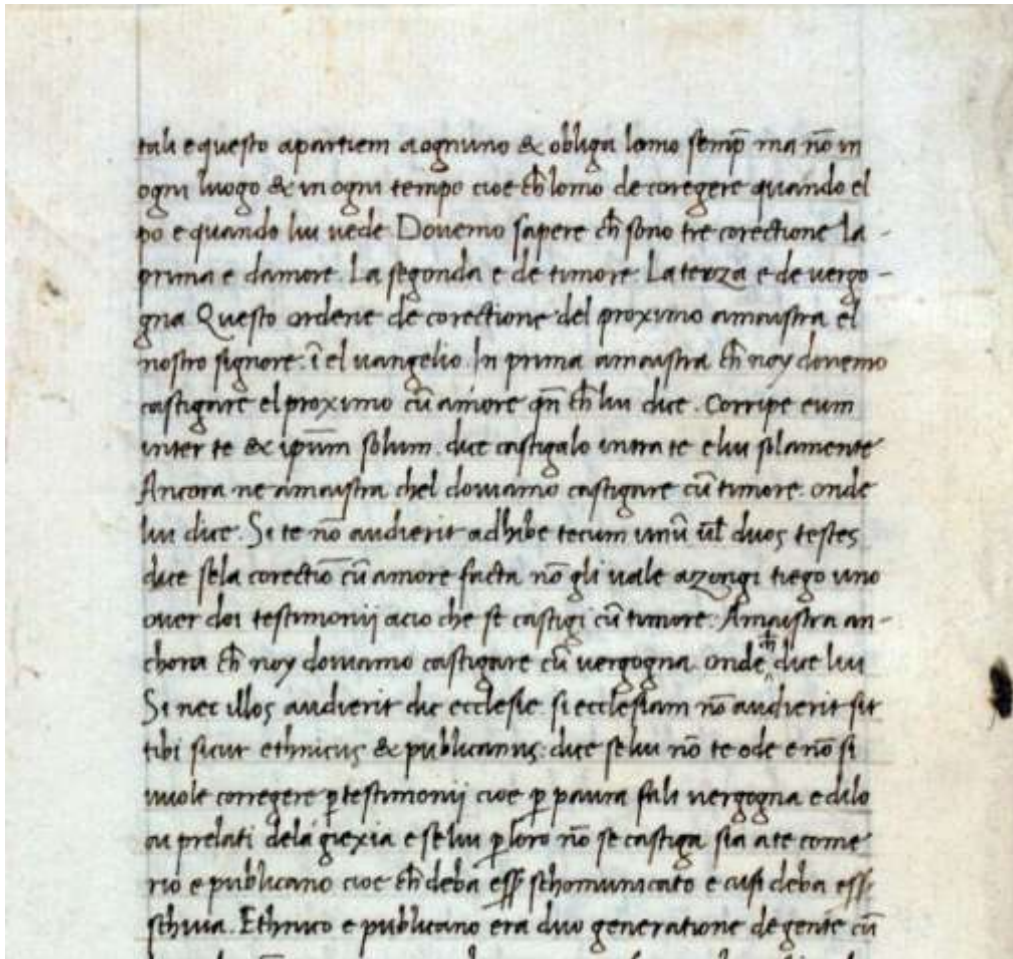 tali e questo apartiem a ognuno & obliga lomo semp̄ ma nō in
ogni luogo & in ogni tempo cioe ch̄ lomo de coregere quando el
po e quando lui uede Douemo sapere ch̄ sono tre corectione la -
prima e damore. La segonda e de timore. La terza e de uergo -
gna Questo ordene de corectione del proximo amaistra el
nostro signore. ī el uangelio. In prima amaistra ch̄ noy douemo
castigare el proximo cū amore qn̄ ch̄ lui dice. Corripe eum
inter te & ip̄um solum. dice castigalo intra te e lui solamente
Ancora ne amaistra chel douiamo castigare cū timore. onde
lui dice. Si te nō audierit adhibe tecum unū ul̄ duos testes
dice se la corectiō cū amore facta nō gli uale azongi tiego uno
ouer doi testimonij acio che se castigi cū timore. Amaistra an-
chora ch̄ noy douiamo castigare cū uergogna. onde ch̄ dice lui
Si nec illos audierit dic ecclesie. si ecclesiam nō audierit sit
tibi sicut ethnicus & publicanus. dice se lui nō te ode e nō si
uuole corregere p̱ testimonij cioe p̱ paura fali uergogna e dilo
ai prelati dela giexia e se lui p̱ loro nō se castiga sia a te come
rio e publicano cioe ch̄ deba ess̄ schomunicato e cusi deba ess̄
schiuia. Ethnico e publicano era duo generatione de gente cū